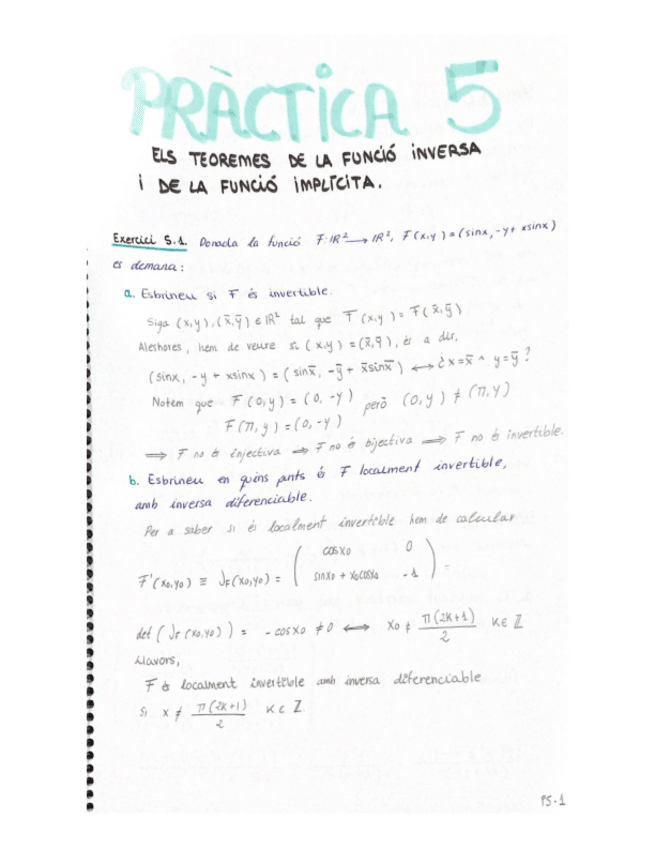 PRÀCTICA 5
ELS TEOREMES DE LA FUNCIÓ INVERSA
i DE LA FUNCIÓ IMPLÍCITA.
Exercici 5.1. Donada la funció F: IR² → IR², F(x,y) = (sinx, -y + xsinx)
es demana:
a. Esbrineu si F és invertible.
Siga (x,y), (x̄,ȳ) ∈ IR² tal que F(x,y) = F(x̄,ȳ)
Aleshores, hem de veure si (x,y) = (x̄,ȳ), és a dir,
(sinx, -y + xsinx) = (sinx̄, -ȳ + x̄sinx̄) ⟷ ¿ x = x̄ ^ y = ȳ ?
Notem que F(0,y) = (0, -y) però (0,y) ≠ (π,y)
F(π,y) = (0, -y)
⟹ F no és injectiva ⟹ F no és bijectiva ⟹ F no és invertible.
b. Esbrineu en quins punts és F localment invertible,
amb inversa diferenciable.
Per a saber si és localment invertible hem de calcular
F'(x₀,y₀) ≡ J_F(x₀,y₀) = ( cosx₀ 0
sinx₀ + x₀cosx₀ -1 ) =
det (J_F(x₀,y₀)) = -cosx₀ ≠ 0 ⟺ x₀ ≠ π(2k+1)/2 k ∈ ℤ
Llavors,
F és localment invertible amb inversa diferenciable
si x ≠ π(2k+1)/2 k ∈ ℤ.
P5-1